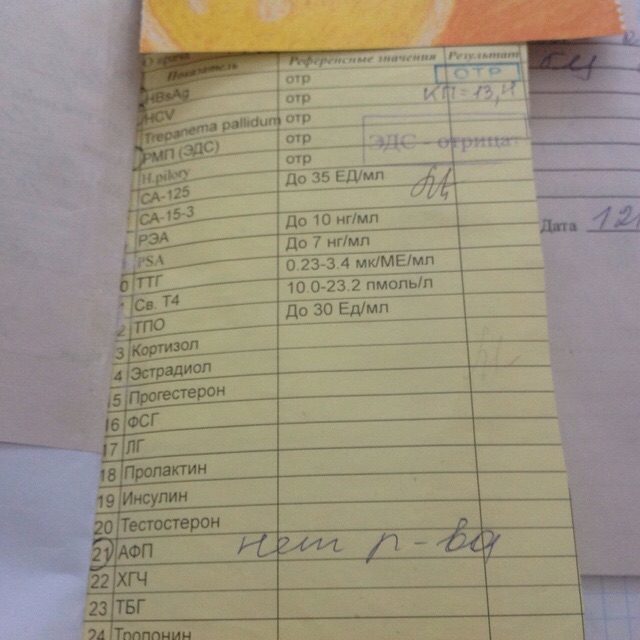 Показатель Референсные значения Результат
HBsAg отр ОТР
HCV отр КП=13,4
Trepanema pallidum отр
РМП (ЭДС) отр ЭДС - отрица
H.pilory отр
СА-125 До 35 ЕД/мл
СА-15-3
РЭА До 10 нг/мл
PSA До 7 нг/мл
0 ТТГ 0.23-3.4 мк/МЕ/мл
Св. Т4 10.0-23.2 пмоль/л
2 ТПО До 30 Ед/мл
3 Кортизол
4 Эстрадиол
15 Прогестерон
16 ФСГ
17 ЛГ
18 Пролактин
19 Инсулин
20 Тестостерон
21 АФП нет р-ва
22 ХГЧ
23 ТБГ
24 Тропонин
Дата 12